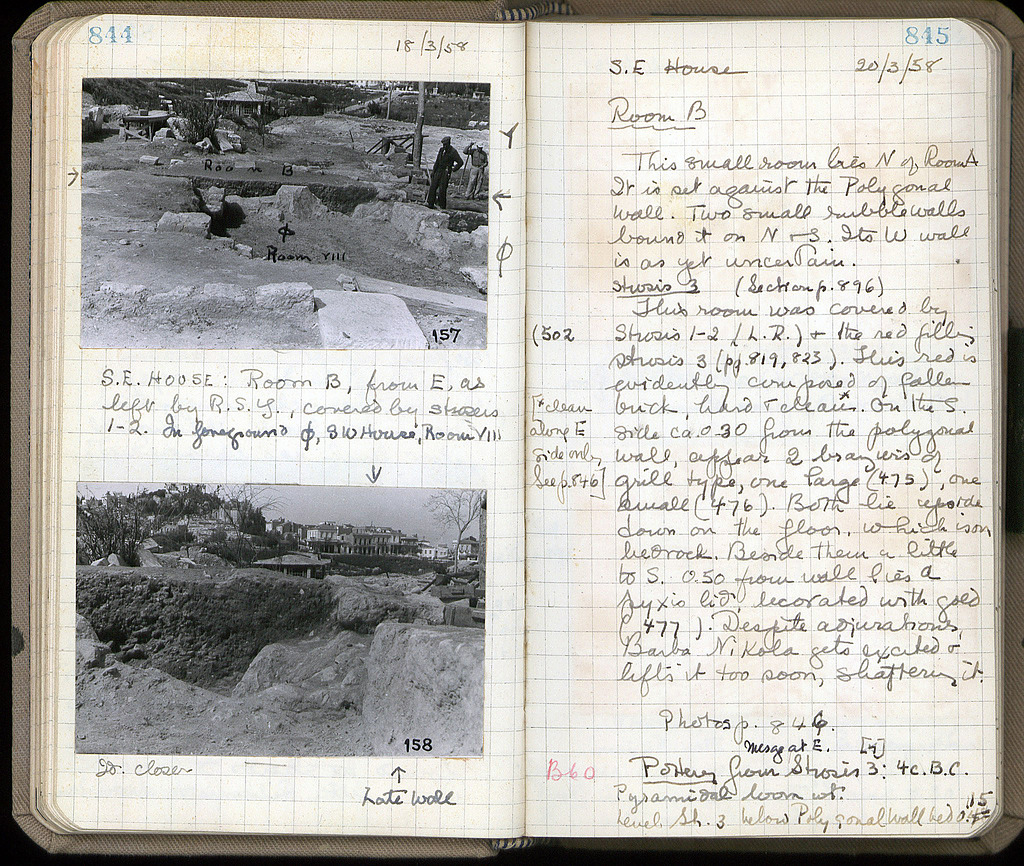 844
18/3/58
Room B
φ
Room VIII
157
S.E. HOUSE: Room B, from E, as
left by R.S.Y., covered by stroses
1-2. In foreground φ, SW House, Room VIII
158
Id. closer
Late Wall
845
S.E House 20/3/58
Room B
This small room lies N of Room A
It is set against the Polygonal
Wall. Two small rubble walls
bound it on N + S. Its W wall
is as yet uncertain.
Strosis 3 (Section p. 896)
This room was covered by
(502
Strosis 1-2 (L.R.) + the red filling
strosis 3 (pp. 819, 823). This red is
evidently composed of fallen
brick, hard + clean*. On the S.
[*clean
along E
side only,
See p. 846]
side ca. 0.30 from the polygonal
wall, appear 2 braziers of
grill type, one large (475), one
small (476). Both lie upside
down on the floor, which is on
bedrock. Beside them a little
to S. 0.50 from wall lies a
pyxis lid, decorated with gold
(477). Despite adjurations,
Barba Nikola gets excited +
lifts it too soon, shattering it.
Photos p. 846.
at E.
B60
Pottery from Strosis 3: 4c. B.C.
Pyramidal loom wt.
Level Str. 3 below Polygonal Wall bed 0.15